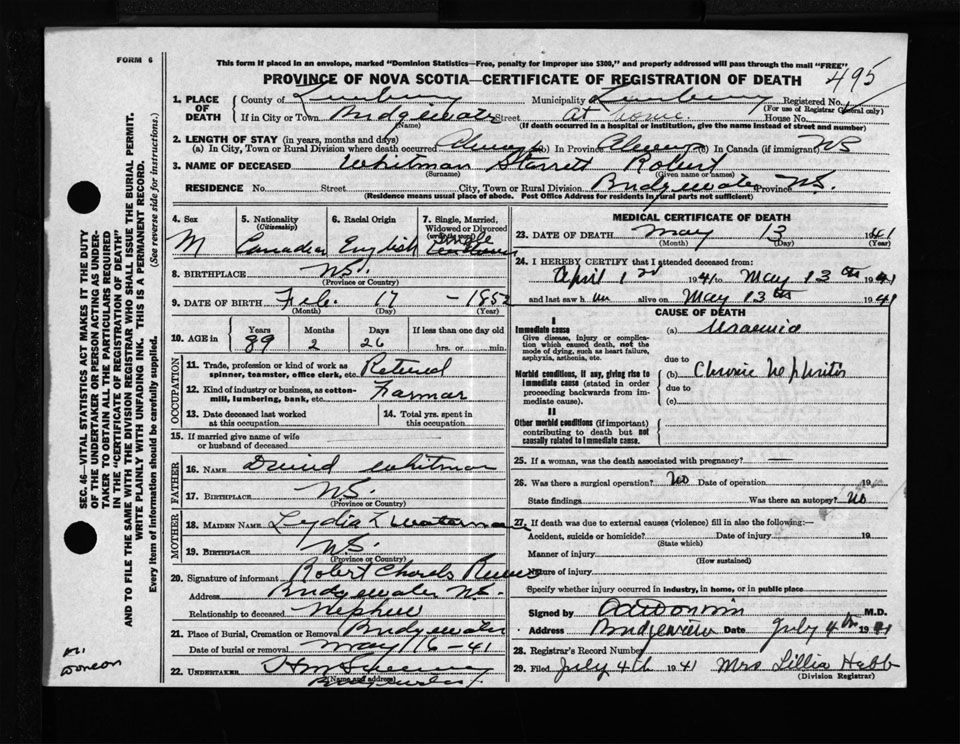 FORM 6
This form if placed in an envelope, marked "Dominion Statistics—Free, penalty for improper use $300," and properly addressed will pass through the mail "FREE"
PROVINCE OF NOVA SCOTIA—CERTIFICATE OF REGISTRATION OF DEATH
495
1. PLACE OF DEATH County of Lunenburg Municipality Lunenburg Registered No.
(For use of Registrar General only)
If in City or Town Bridgewater Street At home House No.
(Name) (If death occurred in a hospital or institution, give the name instead of street and number)
2. LENGTH OF STAY (in years, months and days)
(a) In City, Town or Rural Division where death occurred Always (b) In Province Always (c) In Canada (if immigrant) NS
3. NAME OF DECEASED Whitman Starrett Robert
(Surname) (Given name or names)
RESIDENCE No. Street City, Town or Rural Division Bridgewater Province N.S.
(Residence means usual place of abode. Post Office Address for residents in rural parts not sufficient)
4. Sex M
5. Nationality (Citizenship) Canadian
6. Racial Origin English
7. Single, Married, Widowed or Divorced (write the word) Single
8. BIRTHPLACE N.S.
(Province or Country)
9. DATE OF BIRTH Feb. 17 - 1852
(Month) (Day) (Year)
10. AGE in Years Months Days If less than one day old
89 2 26 hrs. or min.
OCCUPATION
11. Trade, profession or kind of work as spinner, teamster, office clerk, etc. Retired
12. Kind of industry or business, as cotton-mill, lumbering, bank, etc. Farmar
13. Date deceased last worked at this occupation
14. Total yrs. spent in this occupation
15. If married give name of wife or husband of deceased
FATHER
16. NAME David Whitman
17. BIRTHPLACE N.S.
(Province or Country)
MOTHER
18. MAIDEN NAME Lydia L Waterman
19. BIRTHPLACE N.S.
(Province or Country)
20. Signature of informant Robert Charels
Address Bridgewater N.S.
Relationship to deceased Nephew
21. Place of Burial, Cremation or Removal Bridgewater
Date of burial or removal May 16-41
22. UNDERTAKER
(Name and address)
Bridgewater
MEDICAL CERTIFICATE OF DEATH
23. DATE OF DEATH May 13 1941
(Month) (Day) (Year)
24. I HEREBY CERTIFY that I attended deceased from:
April 1 1941 to May 13th 1941
and last saw him alive on May 13th 1941
CAUSE OF DEATH
I
Immediate cause
Give disease, injury or complication which caused death, not the mode of dying, such as heart failure, asphyxia, asthenia, etc.
(a) Uraemia
due to
Morbid conditions, if any, giving rise to immediate cause (stated in order proceeding backwards from immediate cause).
(b) Chronic Nephritis
due to
(c)
II
Other morbid conditions (if important) contributing to death but not causally related to immediate cause.
25. If a woman, was the death associated with pregnancy? —
26. Was there a surgical operation? No Date of operation 19
State findings Was there an autopsy? No
27. If death was due to external causes (violence) fill in also the following:—
Accident, suicide or homicide? Date of injury 19
(State which)
Manner of injury
(How sustained)
Nature of injury
Specify whether injury occurred in industry, in home, or in public place
Signed by M.D.
Address Bridgewater Date July 4th 1941
28. Registrar's Record Number
29. Filed July 4th 1941 Mrs Lillia Hebb
(Division Registrar)
SEC. 46—VITAL STATISTICS ACT MAKES IT THE DUTY
OF THE UNDERTAKER OR PERSON ACTING AS UNDERTAKER TO OBTAIN ALL THE PARTICULARS REQUIRED
IN THE "CERTIFICATE OF REGISTRATION OF DEATH"
AND TO FILE THE SAME WITH THE DIVISION REGISTRAR WHO SHALL ISSUE THE BURIAL PERMIT.
WRITE PLAINLY WITH UNFADING INK. THIS IS A PERMANENT RECORD.
Every item of information should be carefully supplied. (See reverse side for instructions.)